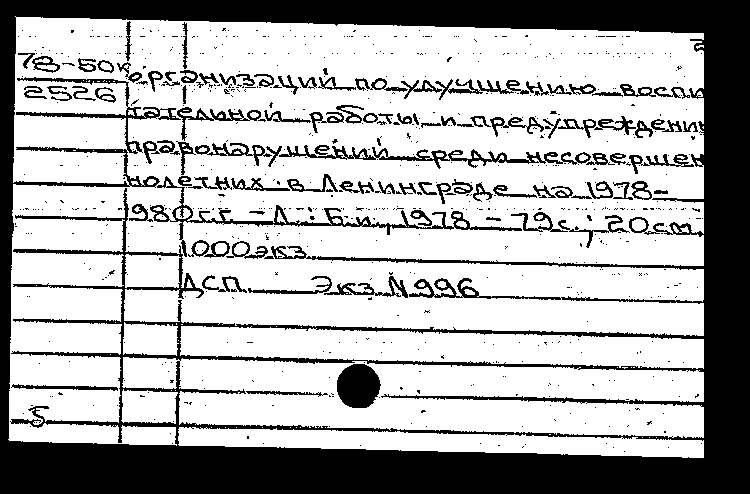 2
78-50к
2526
организаций по улучшению воспи
тательной работы и предупреждению
правонарушений среди несовершен
нолетних в Ленинграде на 1978-
980 г.г. – Л.: Б.и., 1978 – 79 с.; 20 см.
1000 экз
ДСП. Экз N 996
5